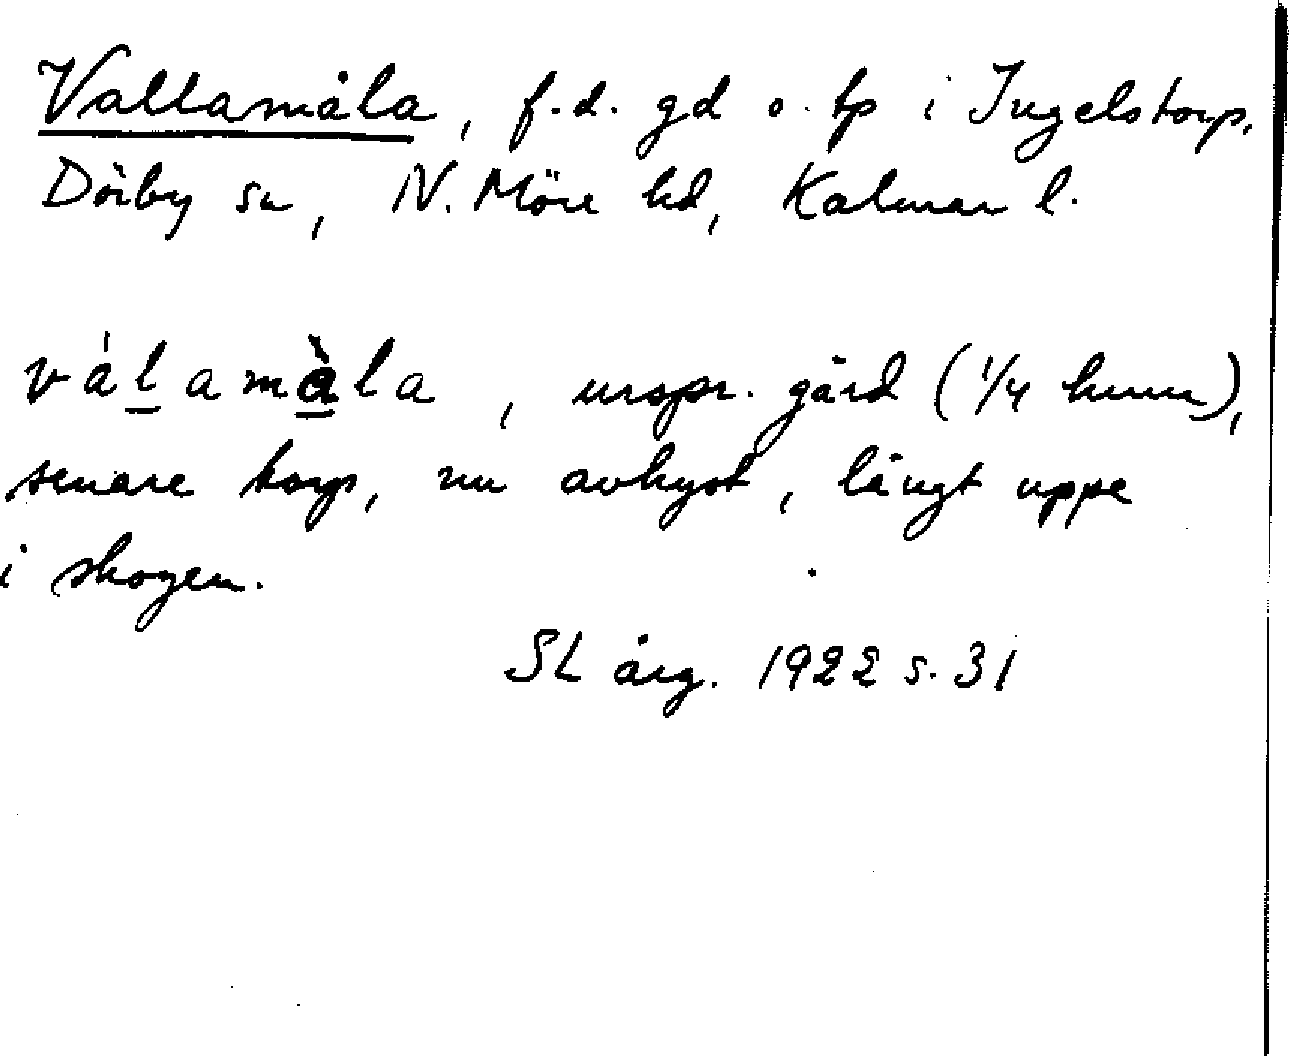 Vallamåla, f.d. gd o. tp i Ingelstorp,
Dörby sn, N. Möre hd, Kalmar l.
válamàla, urspr. gård (1/4 hmn),
senare torp, nu avhyst, långt uppe
i skogen.
SL årg. 1922 s. 31